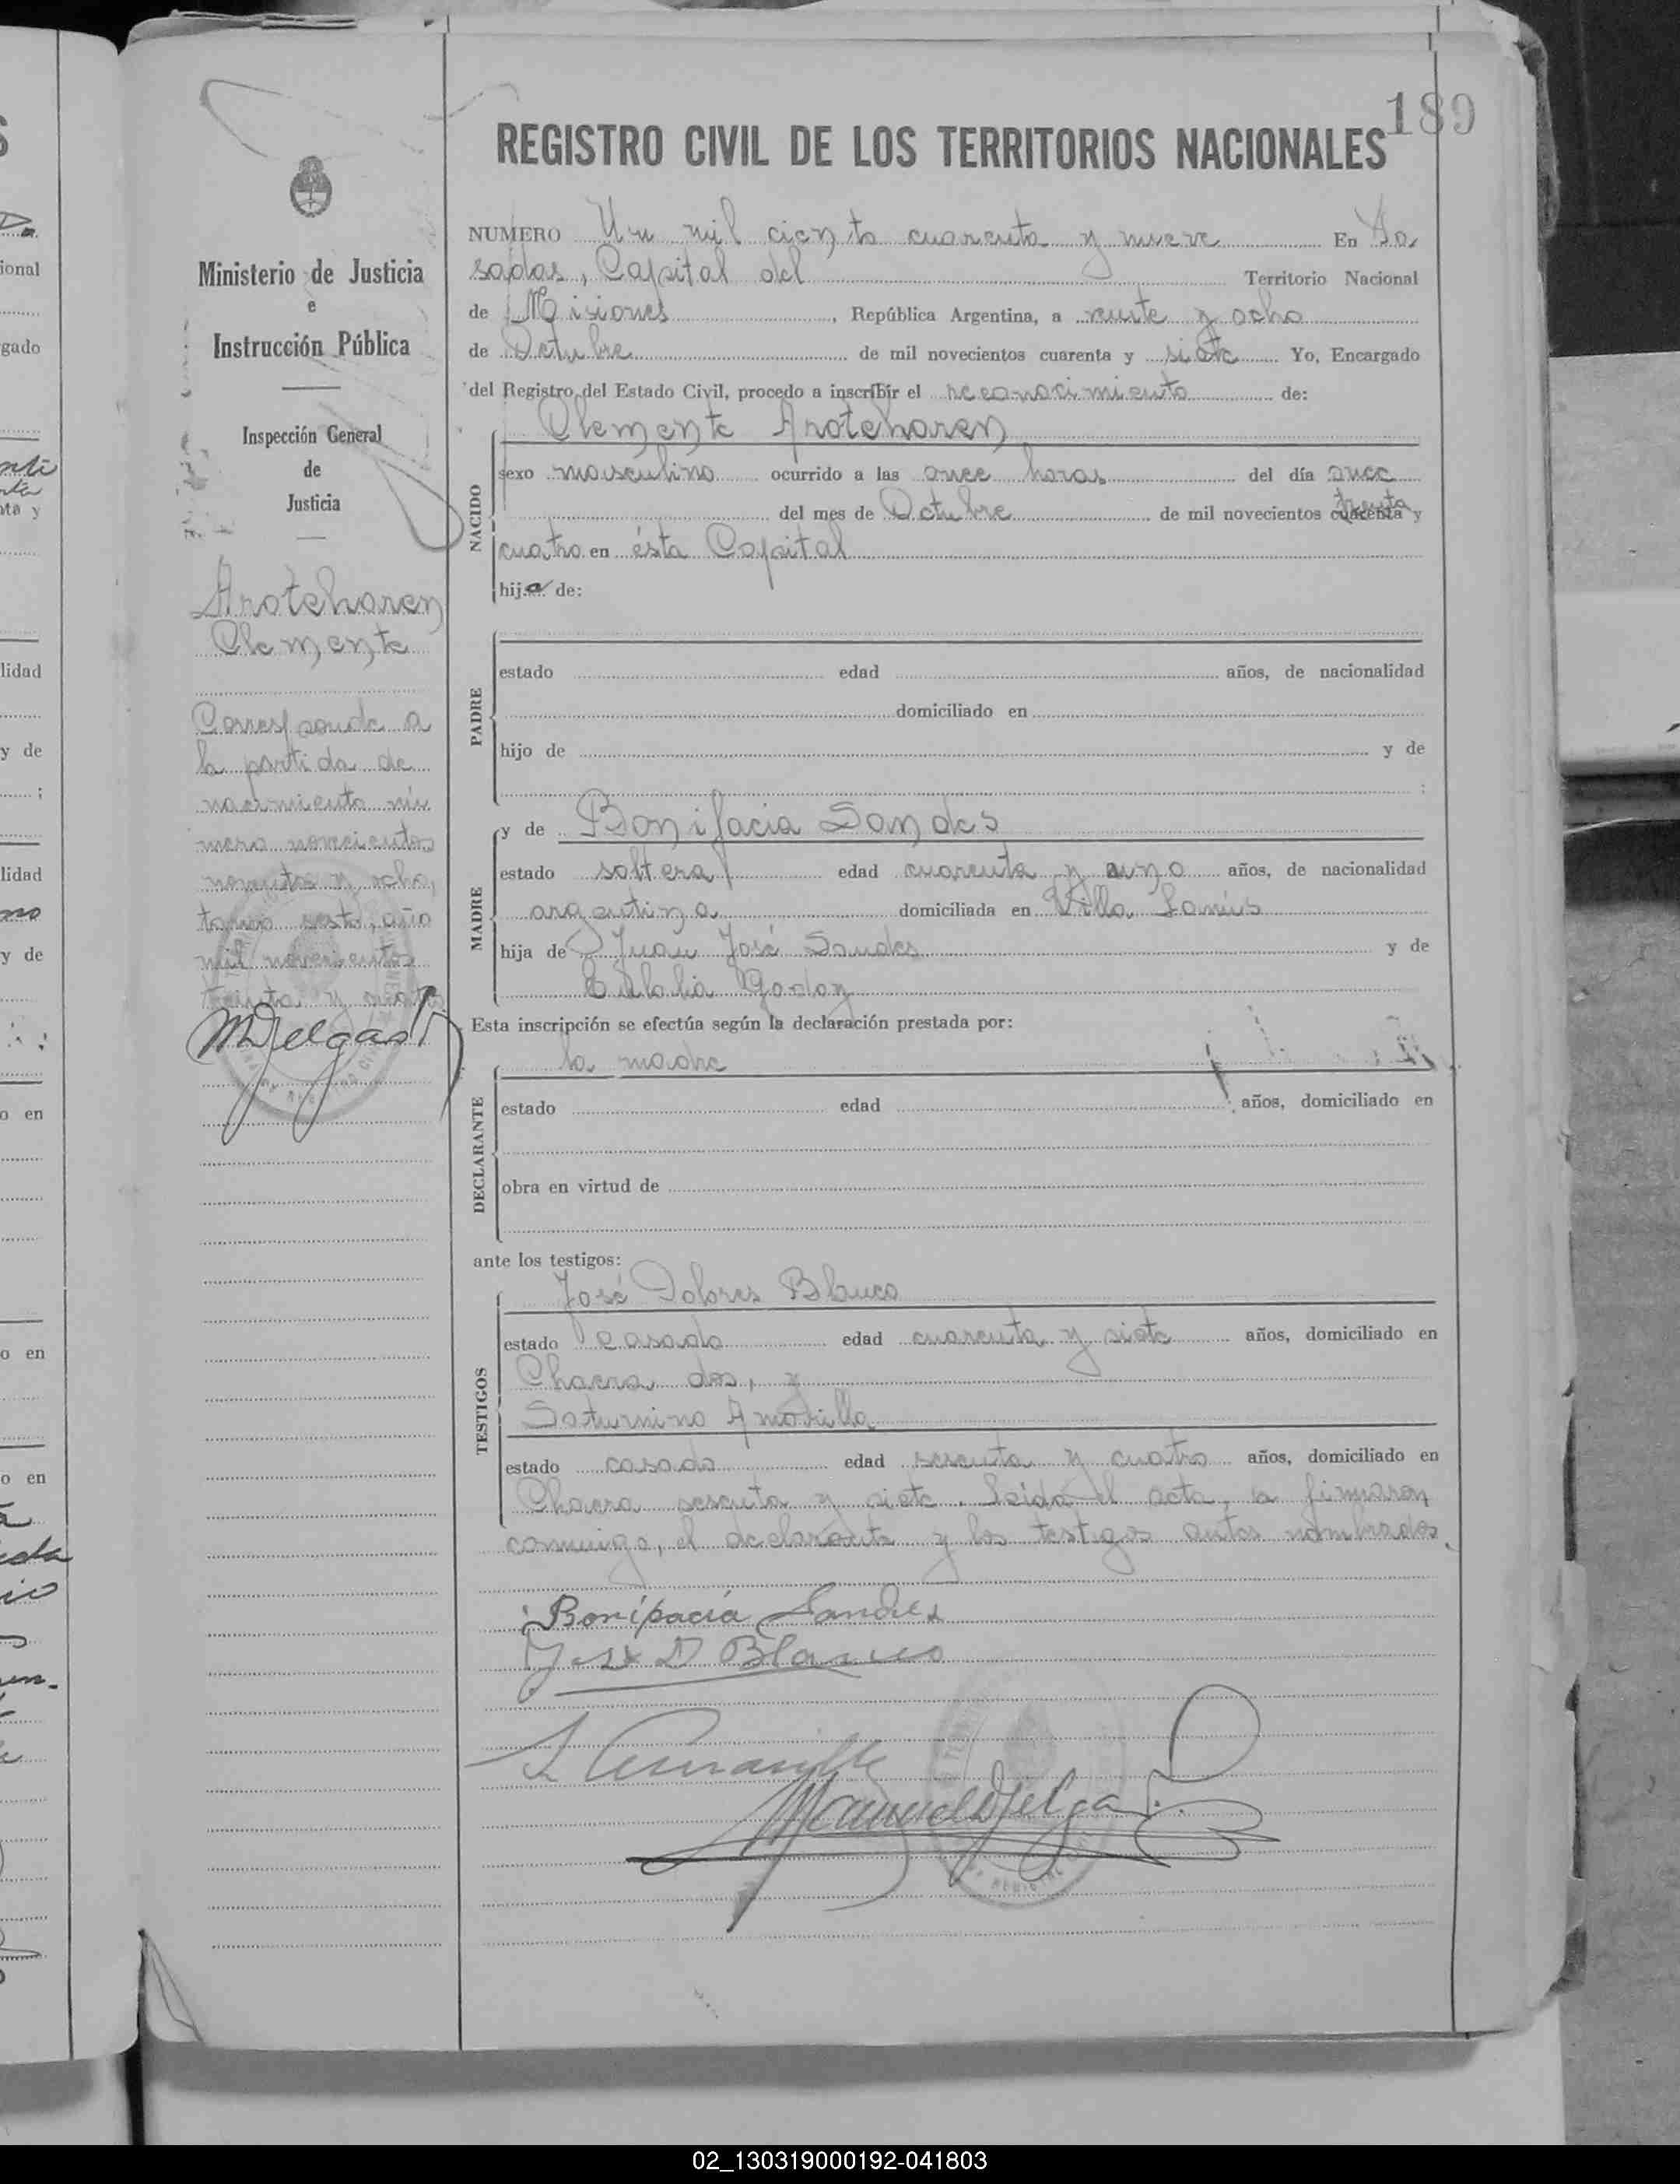 189
REGISTRO CIVIL DE LOS TERRITORIOS NACIONALES
NUMERO Un mil ciento cuarenta y nueve En Po
sadas, Capital del Territorio Nacional
de Misiones, República Argentina, a veinte y ocho
de Octubre de mil novecientos cuarenta y siete Yo, Encargado
del Registro del Estado Civil, procedo a inscribir el reconocimiento de:
NACIDO
Clemente Arotcharen
sexo masculino ocurrido a las once horas del día once
del mes de Octubre de mil novecientos treinta y
cuatro en ésta Capital
hijo de:
PADRE
estado edad años, de nacionalidad
domiciliado en
hijo de y de
;
MADRE
y de Bonifacia Sandes
estado soltera edad cuarenta y uno años, de nacionalidad
argentina domiciliada en Villa Lanús
hija de Juan José Sandes y de
Eulalia Godoy
Esta inscripción se efectúa según la declaración prestada por:
DECLARANTE
la madre
estado edad años, domiciliado en
obra en virtud de
ante los testigos:
TESTIGOS
José Dolores Blanco
estado casado edad cuarenta y siete años, domiciliado en
Chacra dos, y
Saturnino Amarilla
estado casado edad sesenta y cuatro años, domiciliado en
Chacra sesenta y siete. Leída el acta, la firmaron
conmigo, el declarante y los testigos antes nombrados.
Bonifacia Sandes
José D Blanco
S Amarilla
Manuel Delga
Ministerio de Justicia
e
Instrucción Pública
Inspección General
de
Justicia
Arotcharen
Clemente
Corresponde a
la partida de
nacimiento nú
mero novecientos
noventa y ocho,
tomo sesto, año
mil novecientos
treinta y
MDelga
02_130319000192-041803